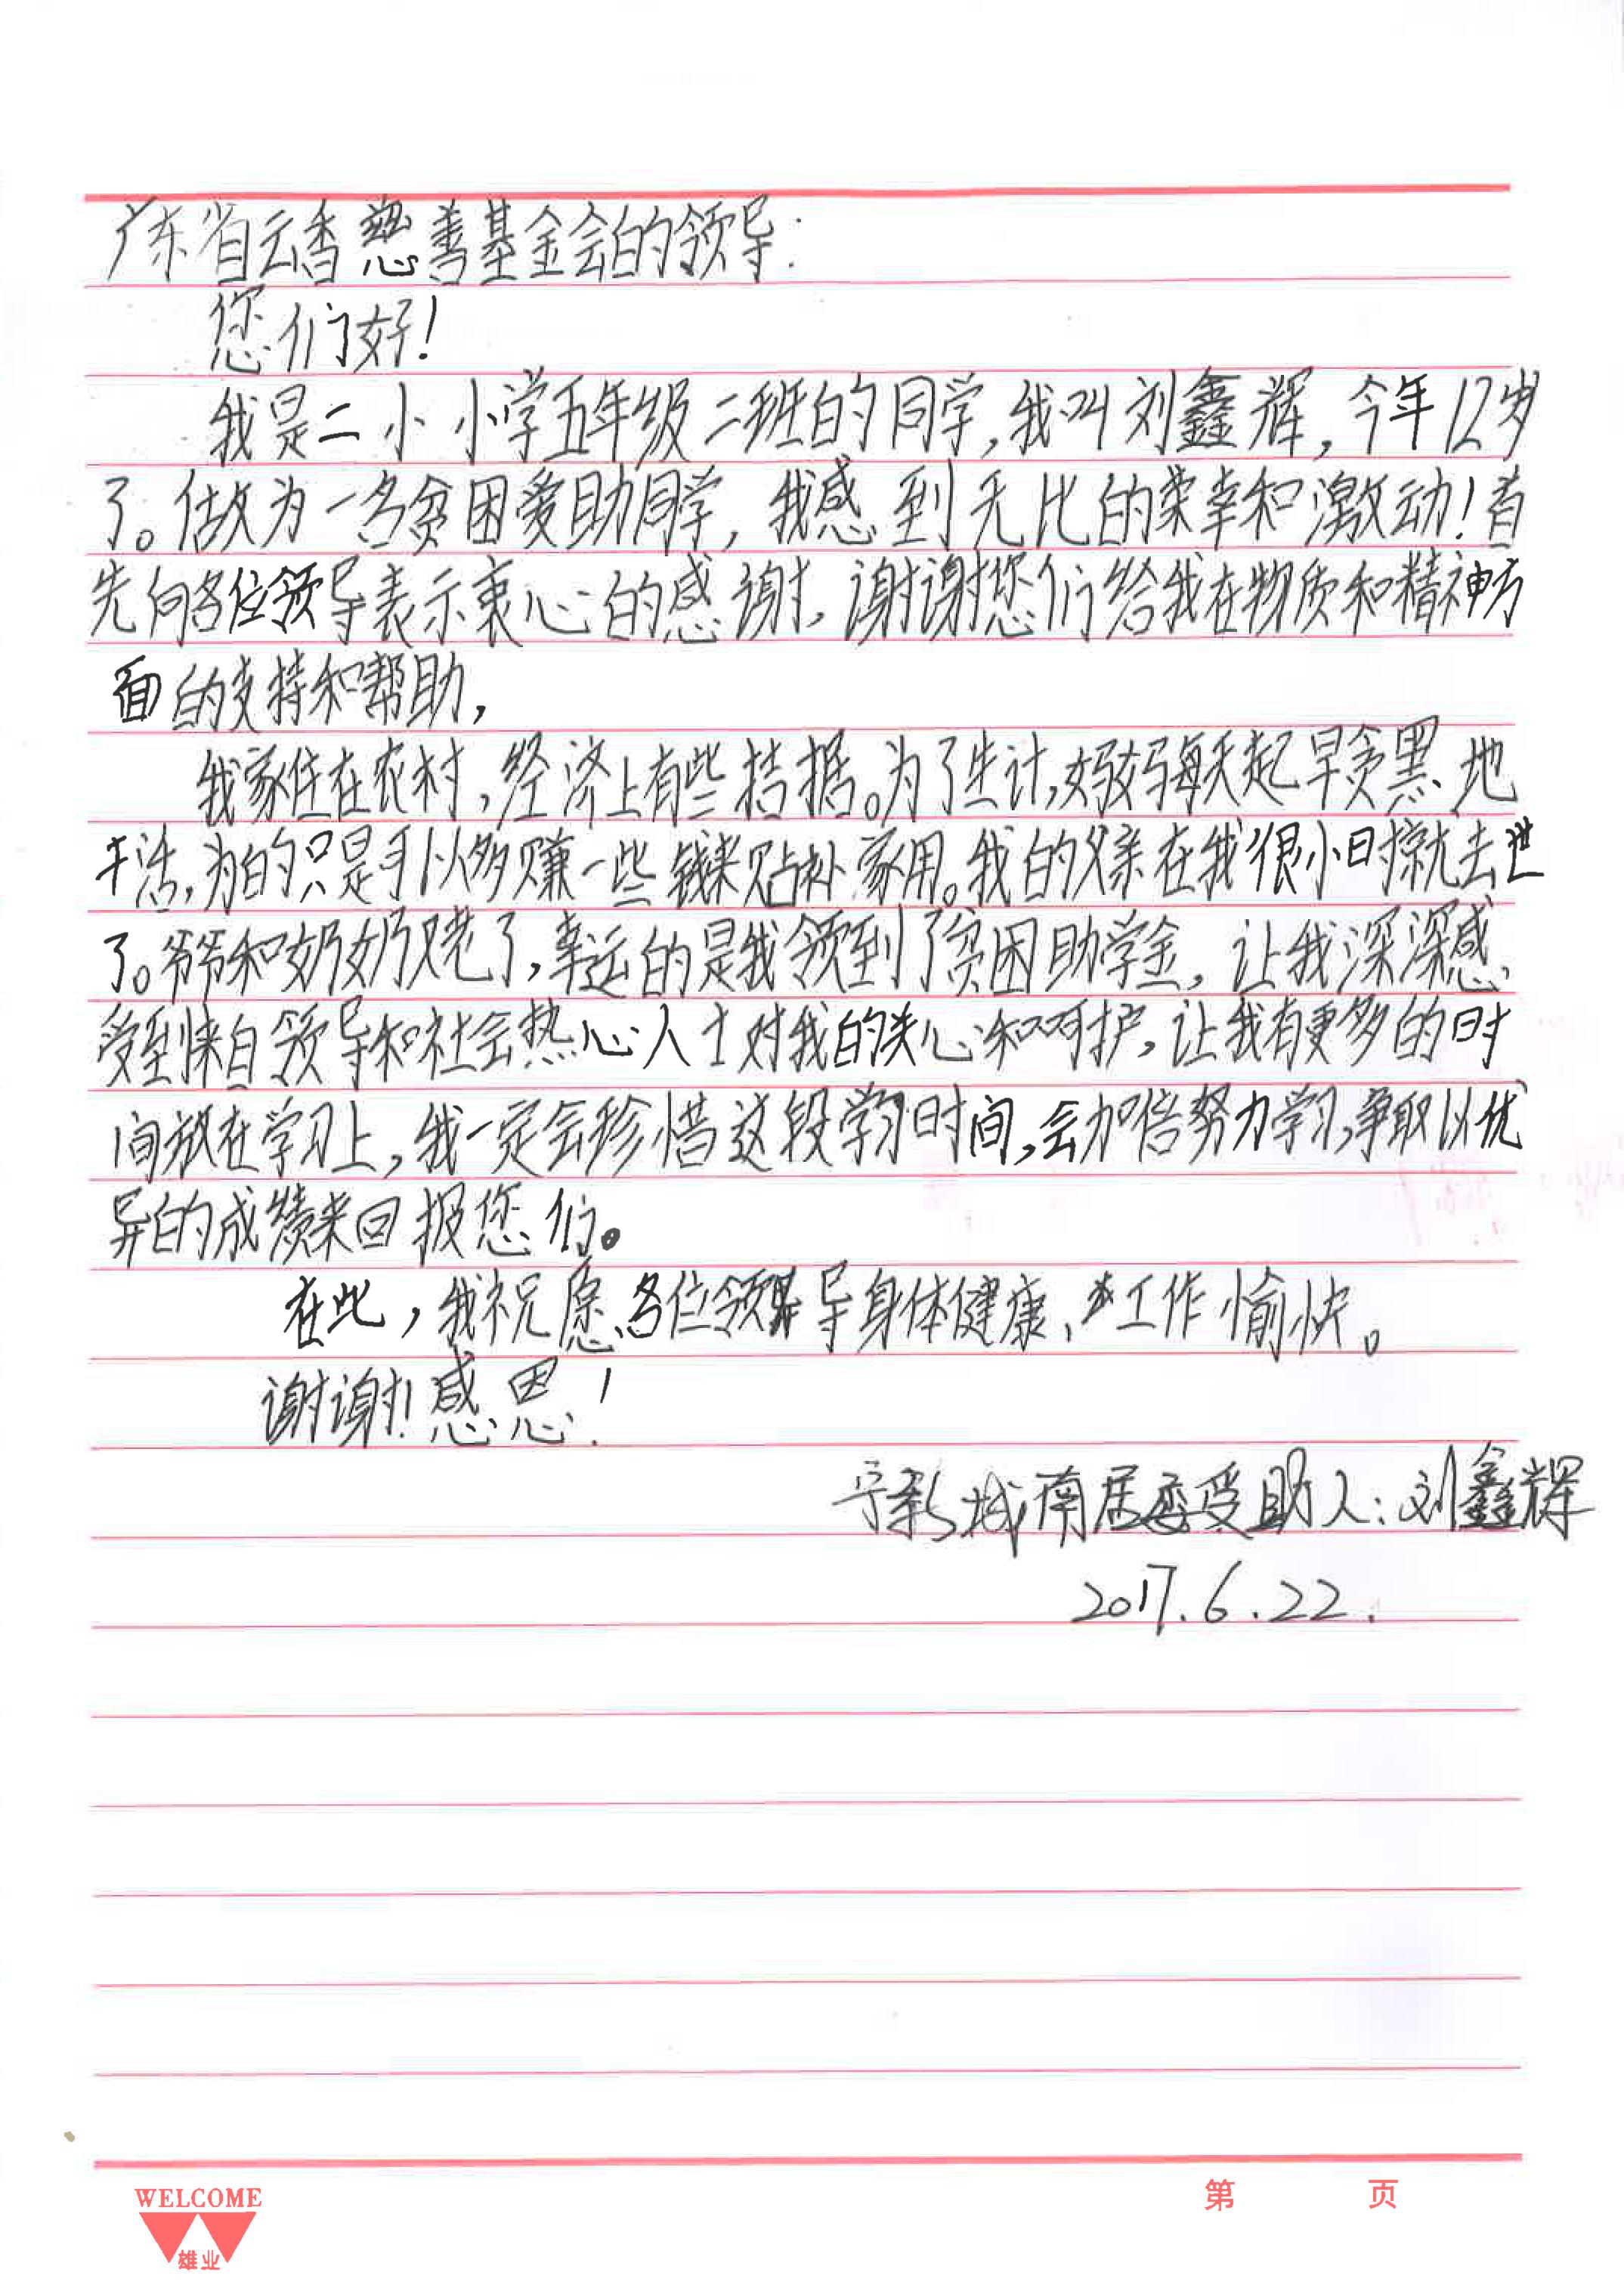 广东省云香慈善基金会的领导：
您们好！
我是二小小学五年级二班的同学，我叫刘鑫辉，今年12岁
了。做为一名贫困受助同学，我感到无比的荣幸和激动！首
先向各位领导表示衷心的感谢，谢谢您们给我在物质和精神方
面的支持和帮助，
我家住在农村，经济上有些拮据。为了生计，妈妈每天起早贪黑地
干活，为的只是可以多赚一些钱来贴补家用。我的父亲在我很小时就去世
了。爷爷和奶奶又老了，幸运的是我领到了贫困助学金，让我深深感
受到来自领导和社会热心人士对我的关心和呵护，让我有更多的时
间放在学习上，我一定会珍惜这段学习时间，会加倍努力学习，争取以优
异的成绩来回报您们。
在此，我祝愿各位领导身体健康、工作愉快。
谢谢！感恩！
宁新城南居委受助人：刘鑫辉
2017.6.22.
第 页
WELCOME
雄业